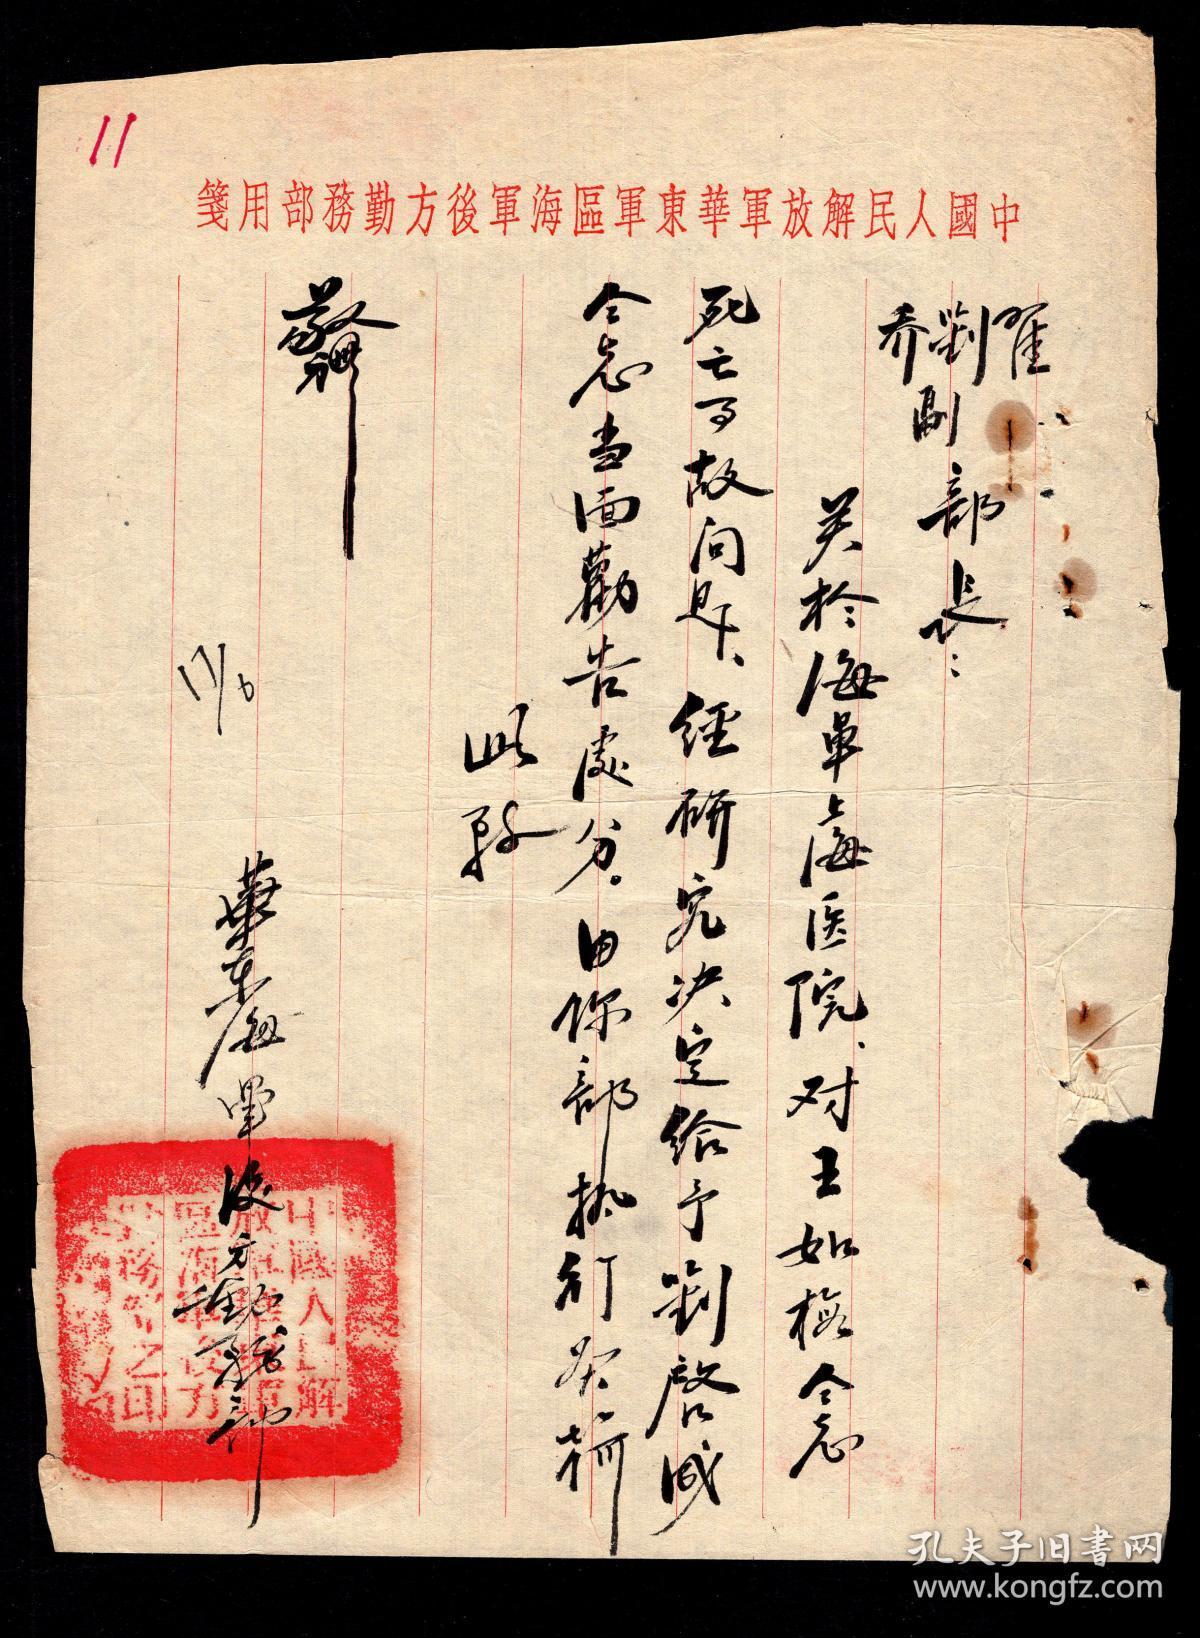 11
中國人民解放軍華東軍區海軍後方勤務部用箋
翟
劉副部長：
乔
关於海军上海医院、对王如梅仝志
死亡事故问题、經研究决定給予劉啓盛
仝志当面勸告處分。由你部执行为荷
此致
敬礼
華東海軍後方勤務部
17/6
中國人民解
放軍華東軍
區海軍後方
勤務部之印
孔夫子旧书网
www.kongfz.com